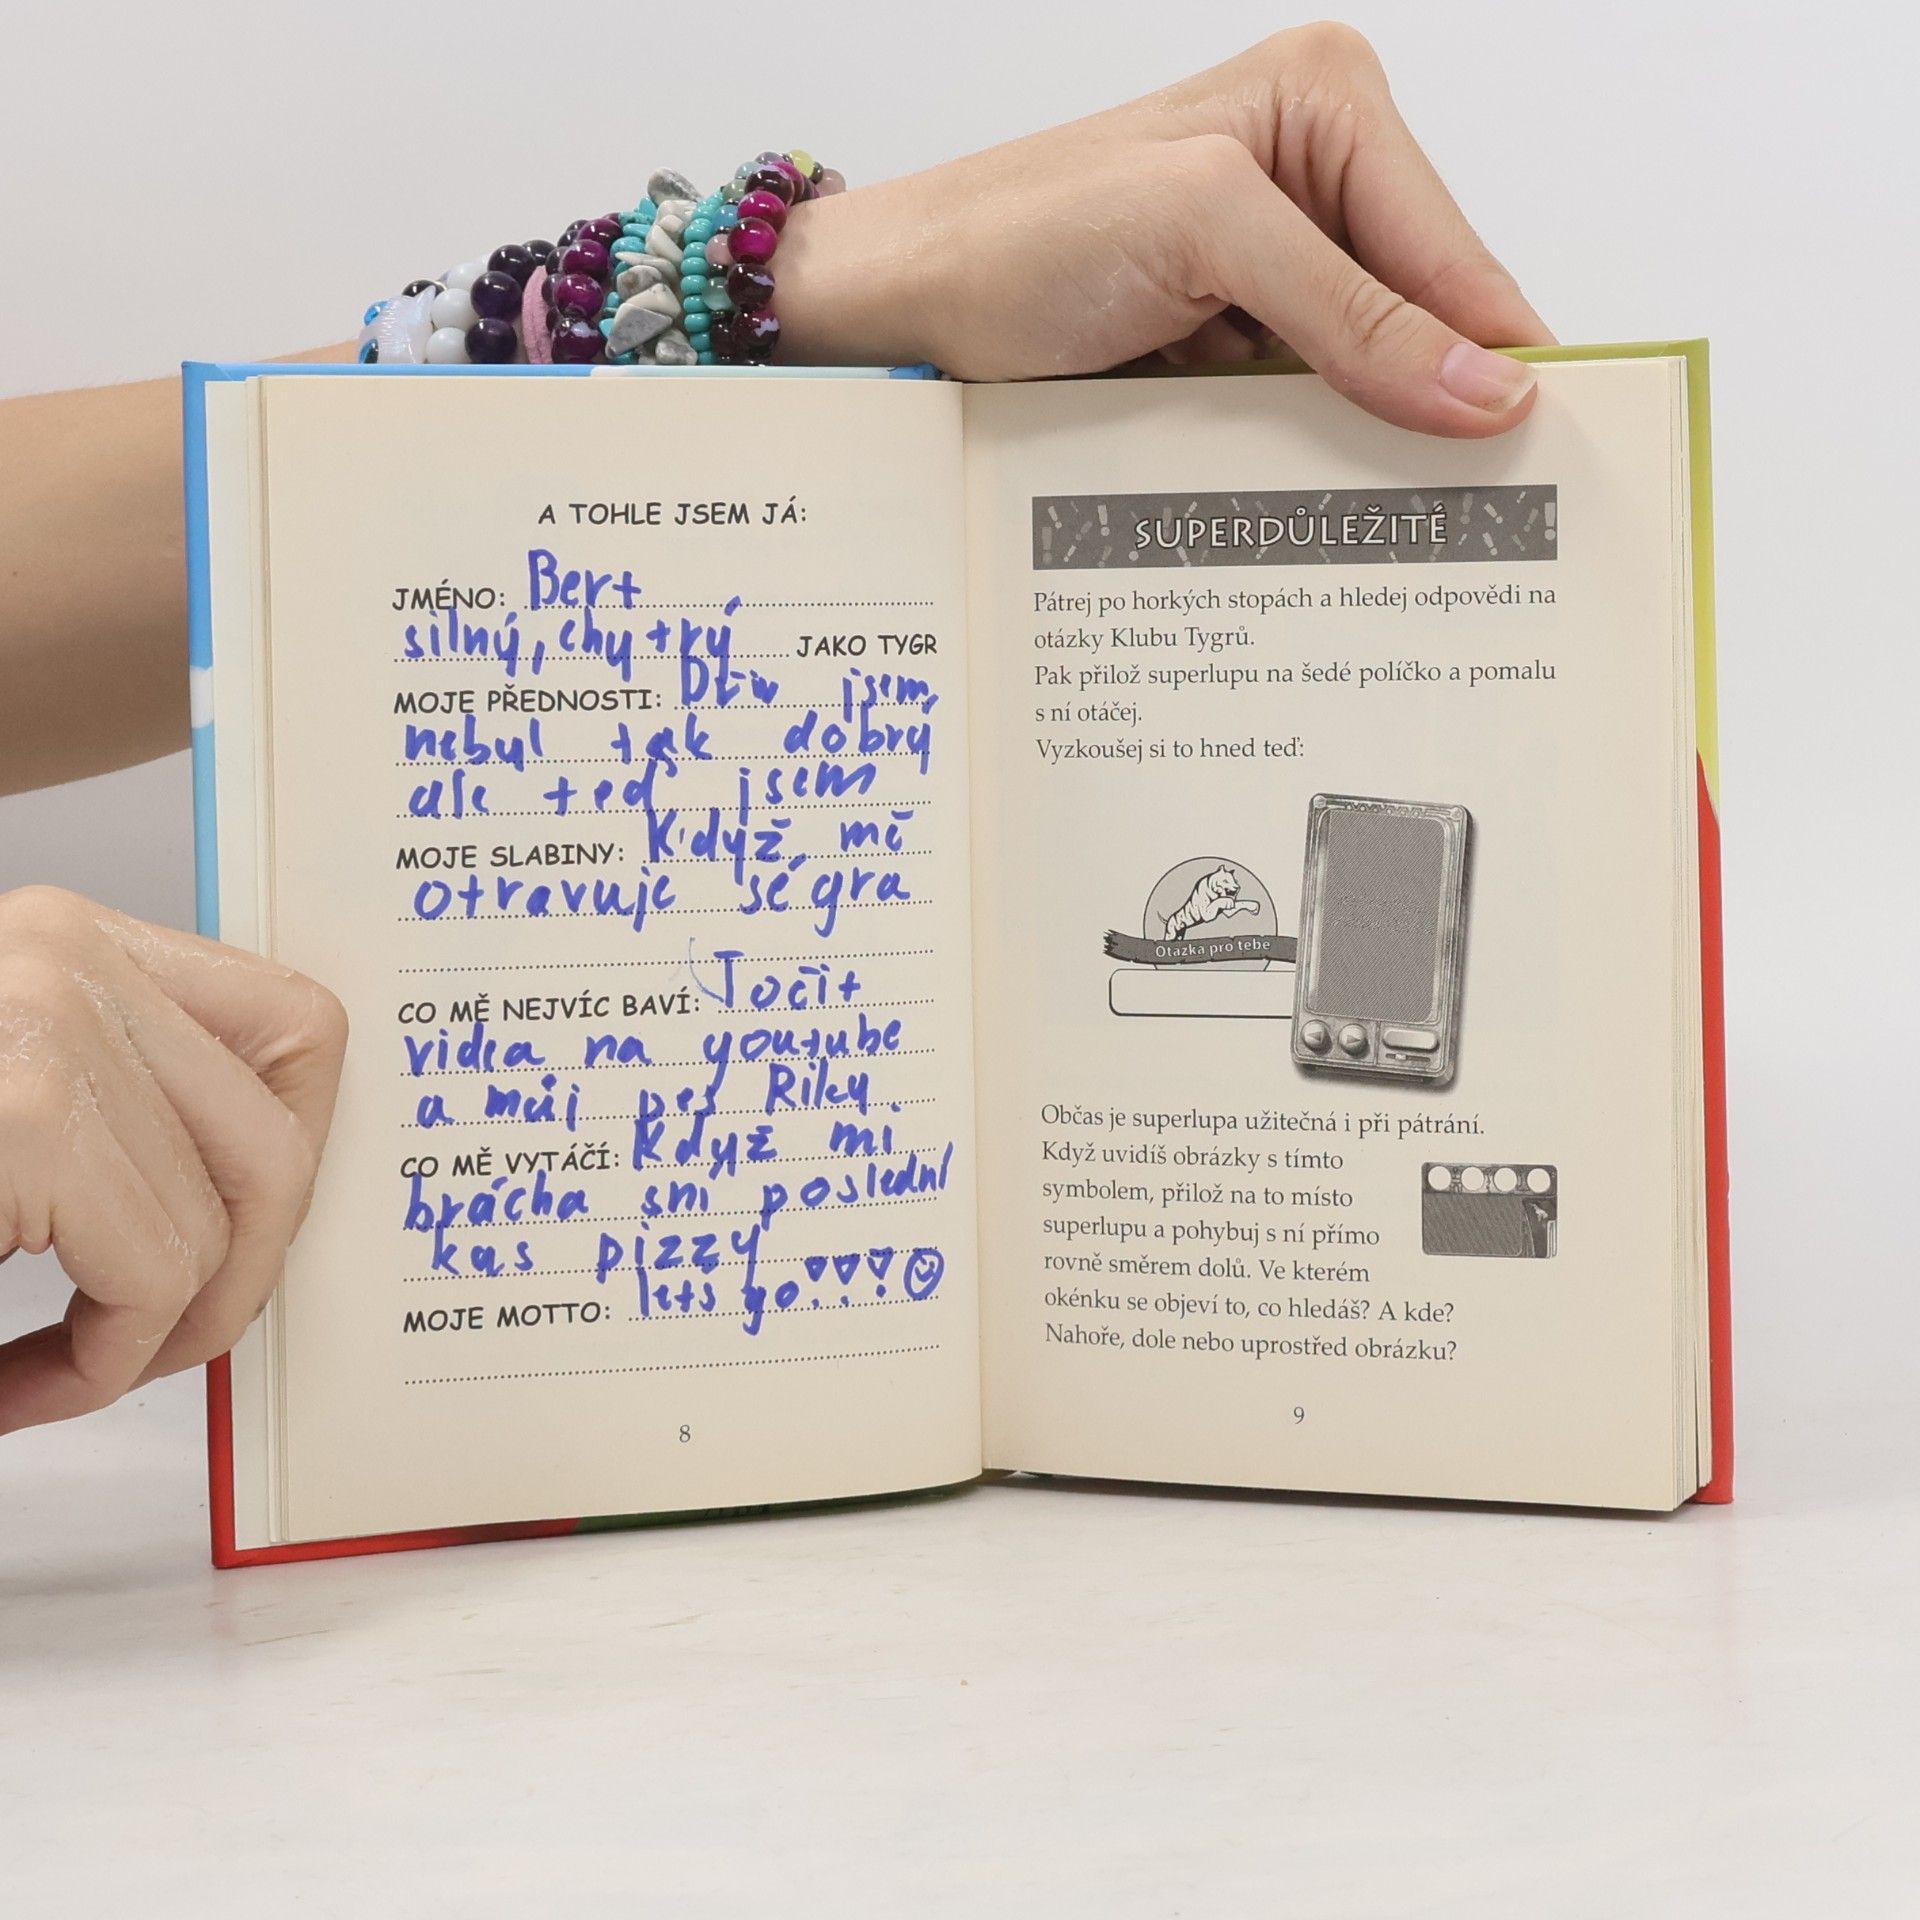 A TOHLE JSEM JÁ:
JMÉNO: Bert
silný, chytrý JAKO TYGR
MOJE PŘEDNOSTI: Dřív jsem
nebyl tak dobrý
ale teď jsem
MOJE SLABINY: Když mě
otravuje ségra
CO MĚ NEJVÍC BAVÍ: Točit
videa na youtube
a můj pes Riley.
CO MĚ VYTÁČÍ: Když mi
brácha sní poslední
kas pizzy
MOJE MOTTO: lets go!!!
8
SUPERDŮLEŽITÉ
Pátrej po horkých stopách a hledej odpovědi na
otázky Klubu Tygrů.
Pak přilož superlupu na šedé políčko a pomalu
s ní otáčej.
Vyzkoušej si to hned teď:
Otázka pro tebe
Občas je superlupa užitečná i při pátrání.
Když uvidíš obrázky s tímto
symbolem, přilož na to místo
superlupu a pohybuj s ní přímo
rovně směrem dolů. Ve kterém
okénku se objeví to, co hledáš? A kde?
Nahoře, dole nebo uprostřed obrázku?
9